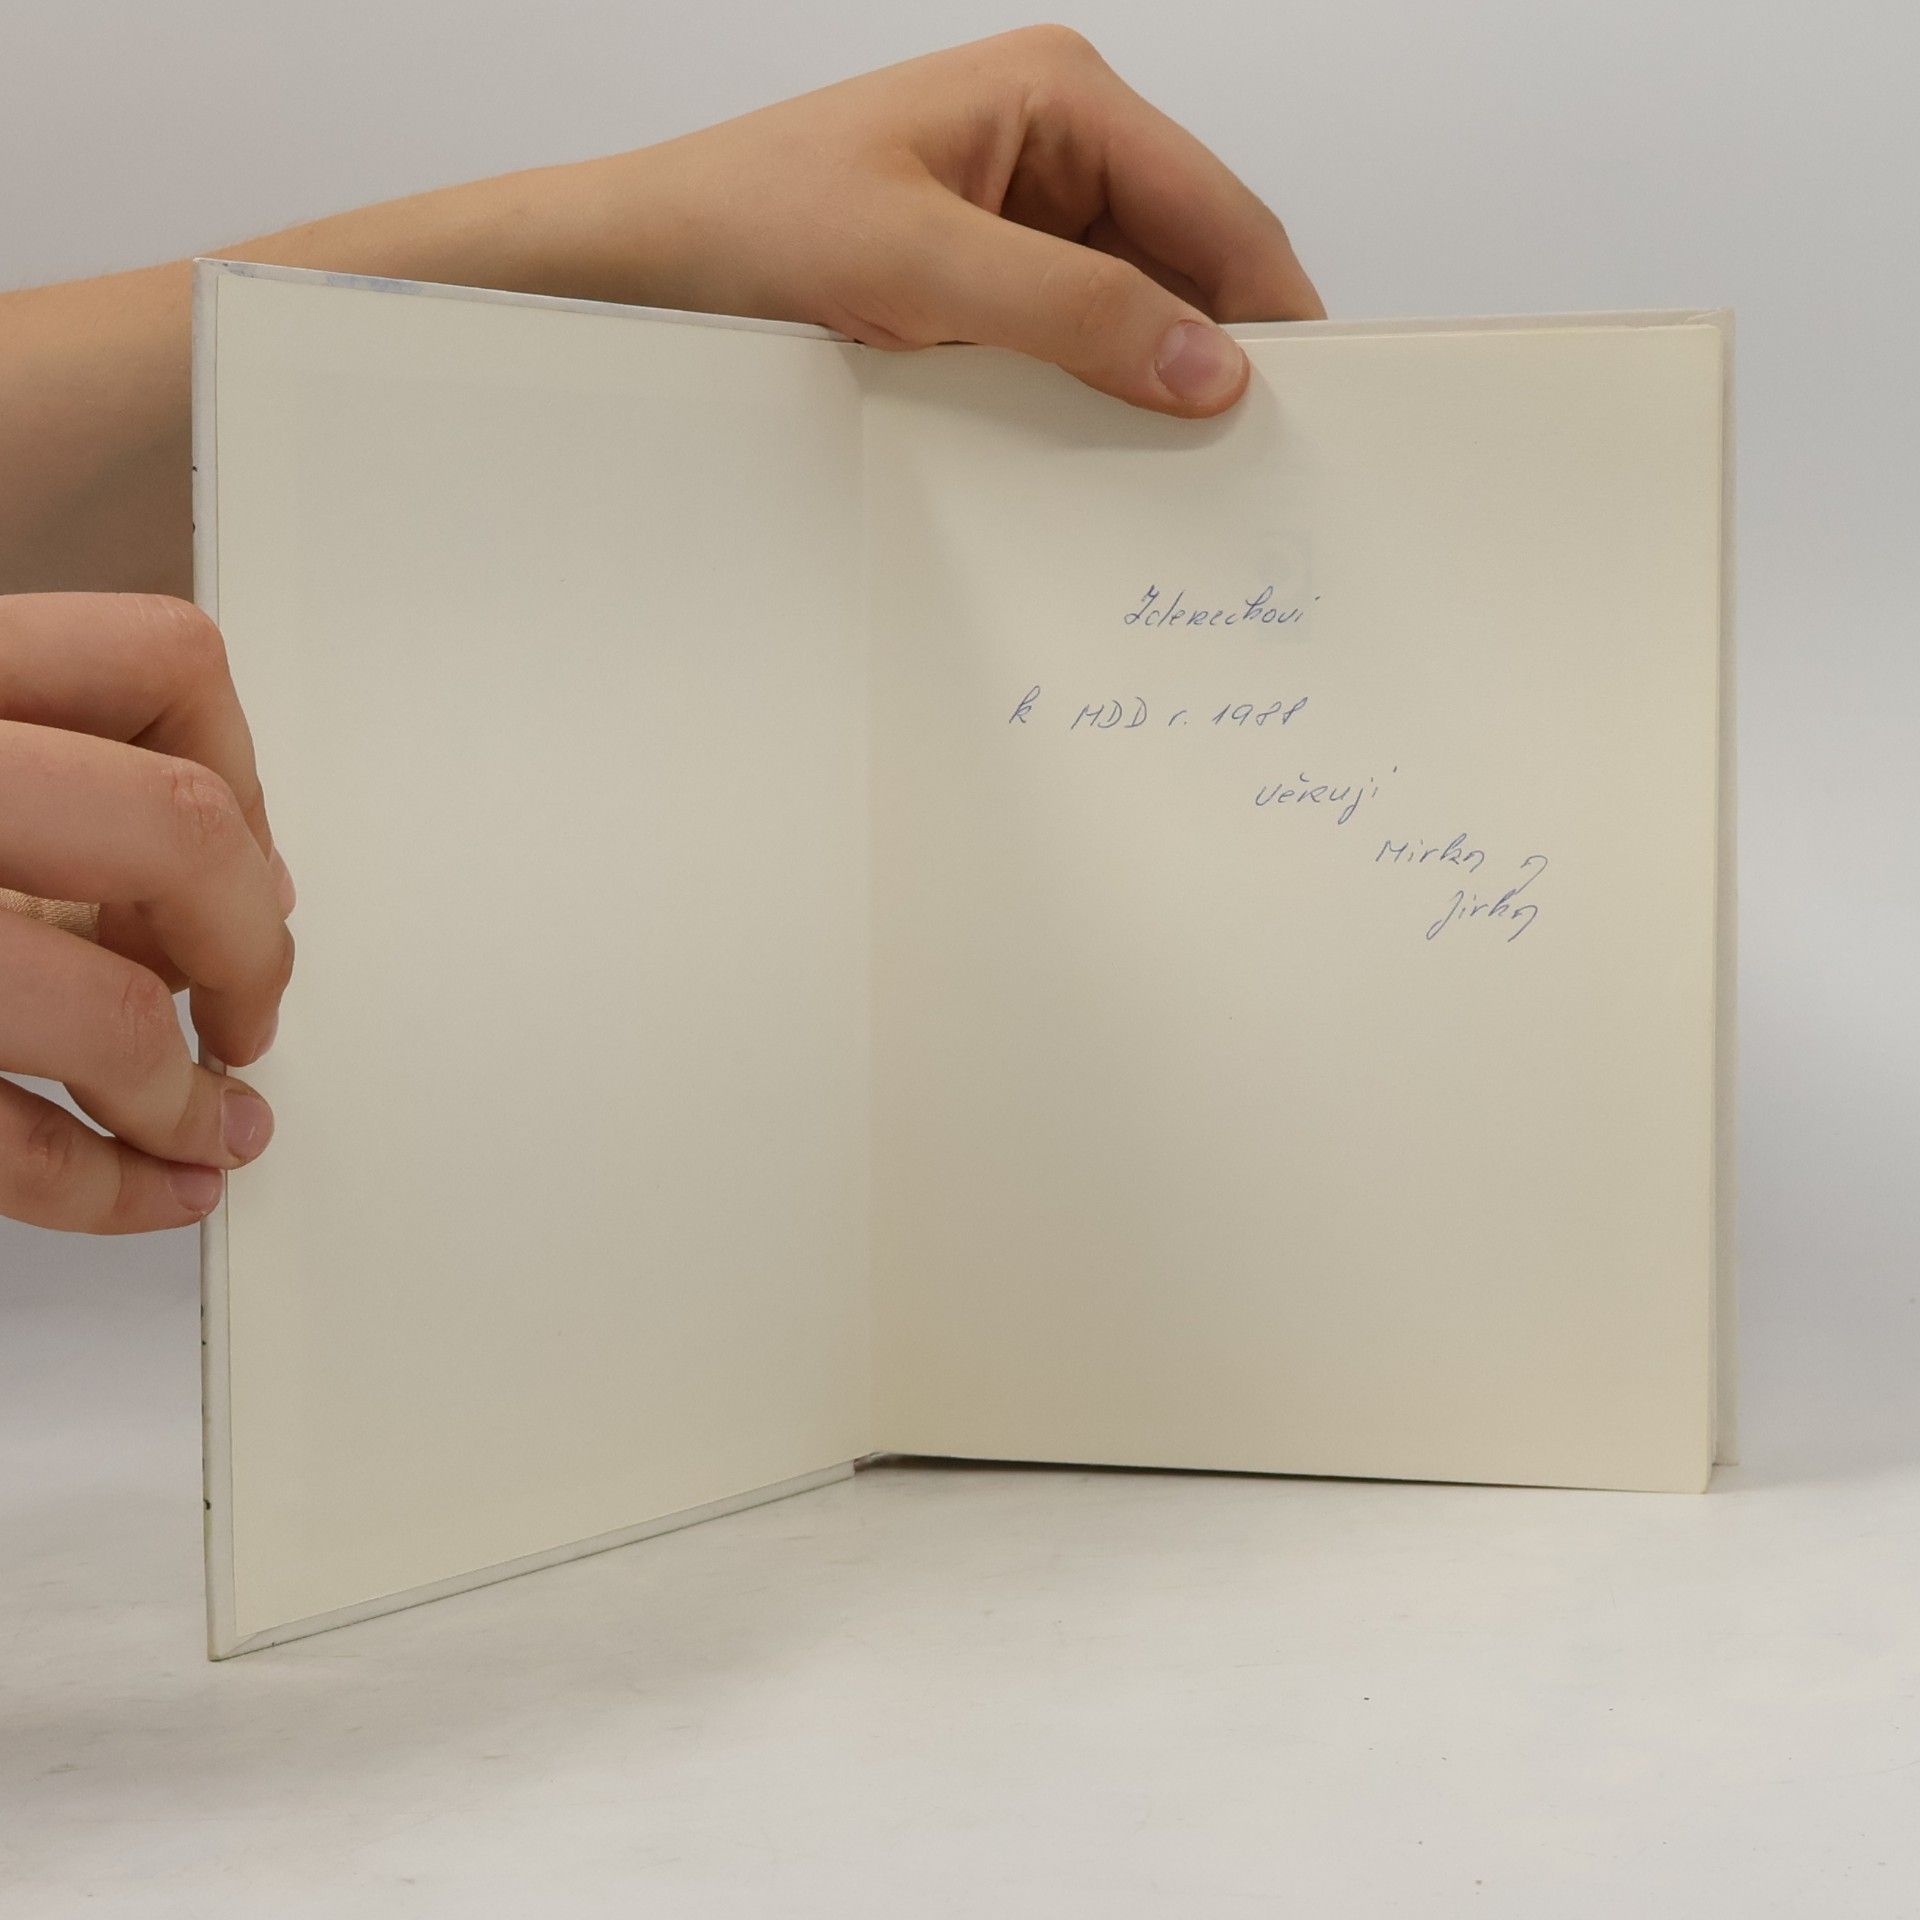 Zdenečkovi
k MDD r. 1988
věnují
Mirka a
Jirka